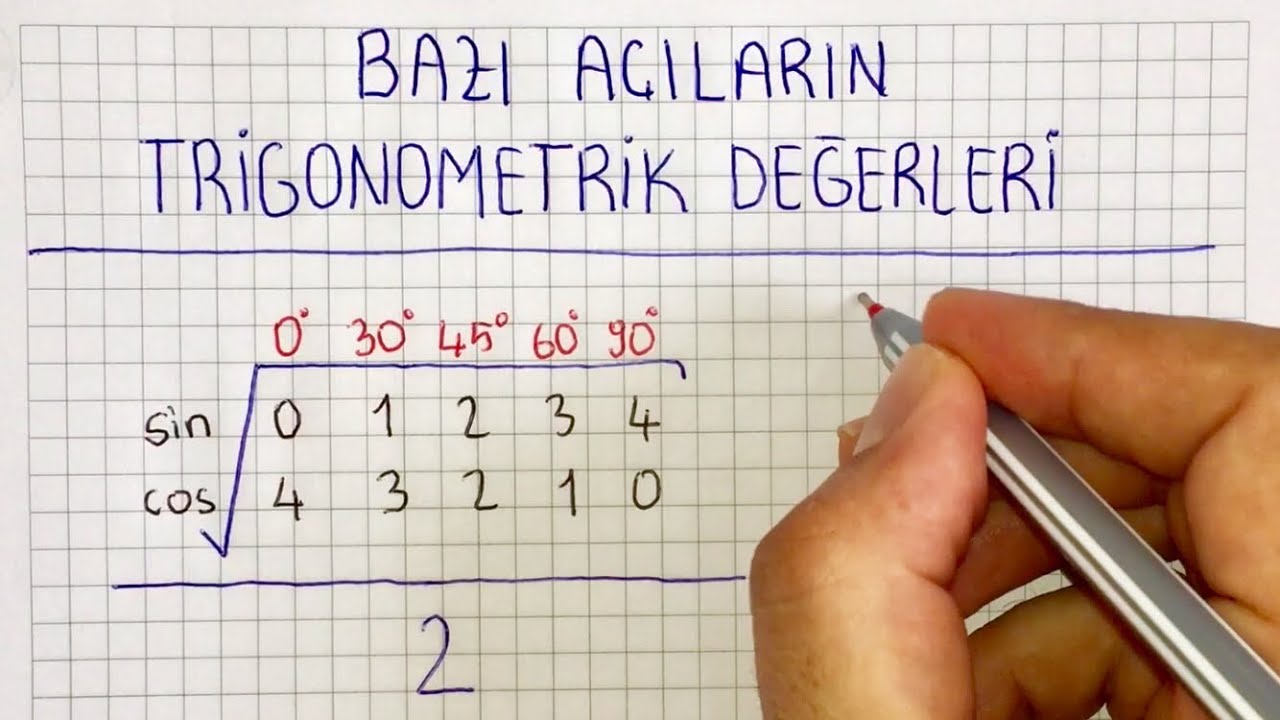 BAZI AÇILARIN
TRİGONOMETRİK DEĞERLERİ
0° 30° 45° 60° 90°
sin 0 1 2 3 4
cos 4 3 2 1 0
2